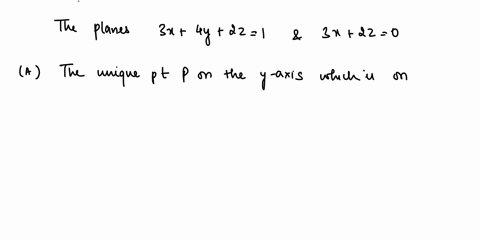 The planes 3x + 4y + 2z = 1 & 3x + 2z = 0
(A) The unique pt P on the y-axis which is on